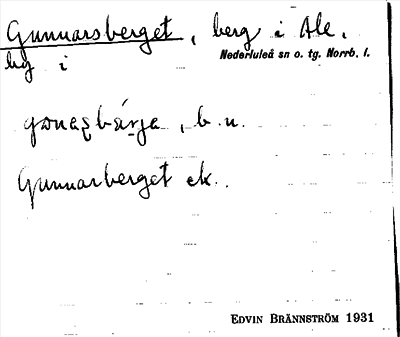 Gunnarsberget, berg i Ale,
Nederluleå sn o. tg. Norrb. l.
bg i
, b. u.
Gunnarberget ek.
EDVIN BRÄNNSTRÖM 1931